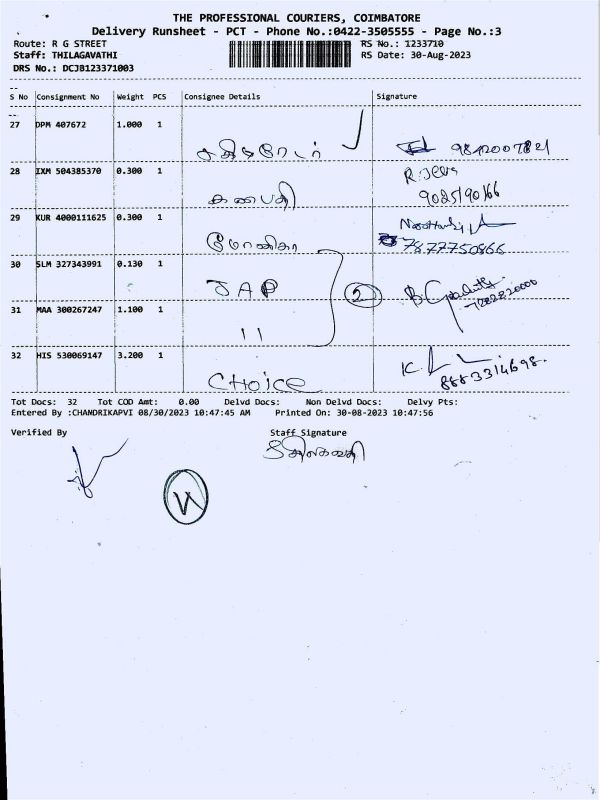 THE PROFESSIONAL COURIERS, COIMBATORE
Delivery Runsheet - PCT - Phone No.:0422-3505555 - Page No.:3
Route: R G STREET RS No.: 1233710
Staff: THILAGAVATHI RS Date: 30-Aug-2023
DRS No.: DCJB123371003
S No Consignment No Weight PCS Consignee Details Signature
27 DPM 407672 1.000 1
28 IXM 504385370 0.300 1 கணபதி R. 9025190166
29 KUR 4000111625 0.300 1 மோனிகா 7877750866
30 SLM 327343991 0.130 1 JAP 2 B
31 MAA 300267247 1.100 1 11
32 HIS 530069147 3.200 1 CHOICE K. 8883314698.
Tot Docs: 32 Tot COD Amt: 0.00 Delvd Docs: Non Delvd Docs: Delvy Pts:
Entered By :CHANDRIKAPVI 08/30/2023 10:47:45 AM Printed On: 30-08-2023 10:47:56
Verified By Staff Signature
திலகவதி